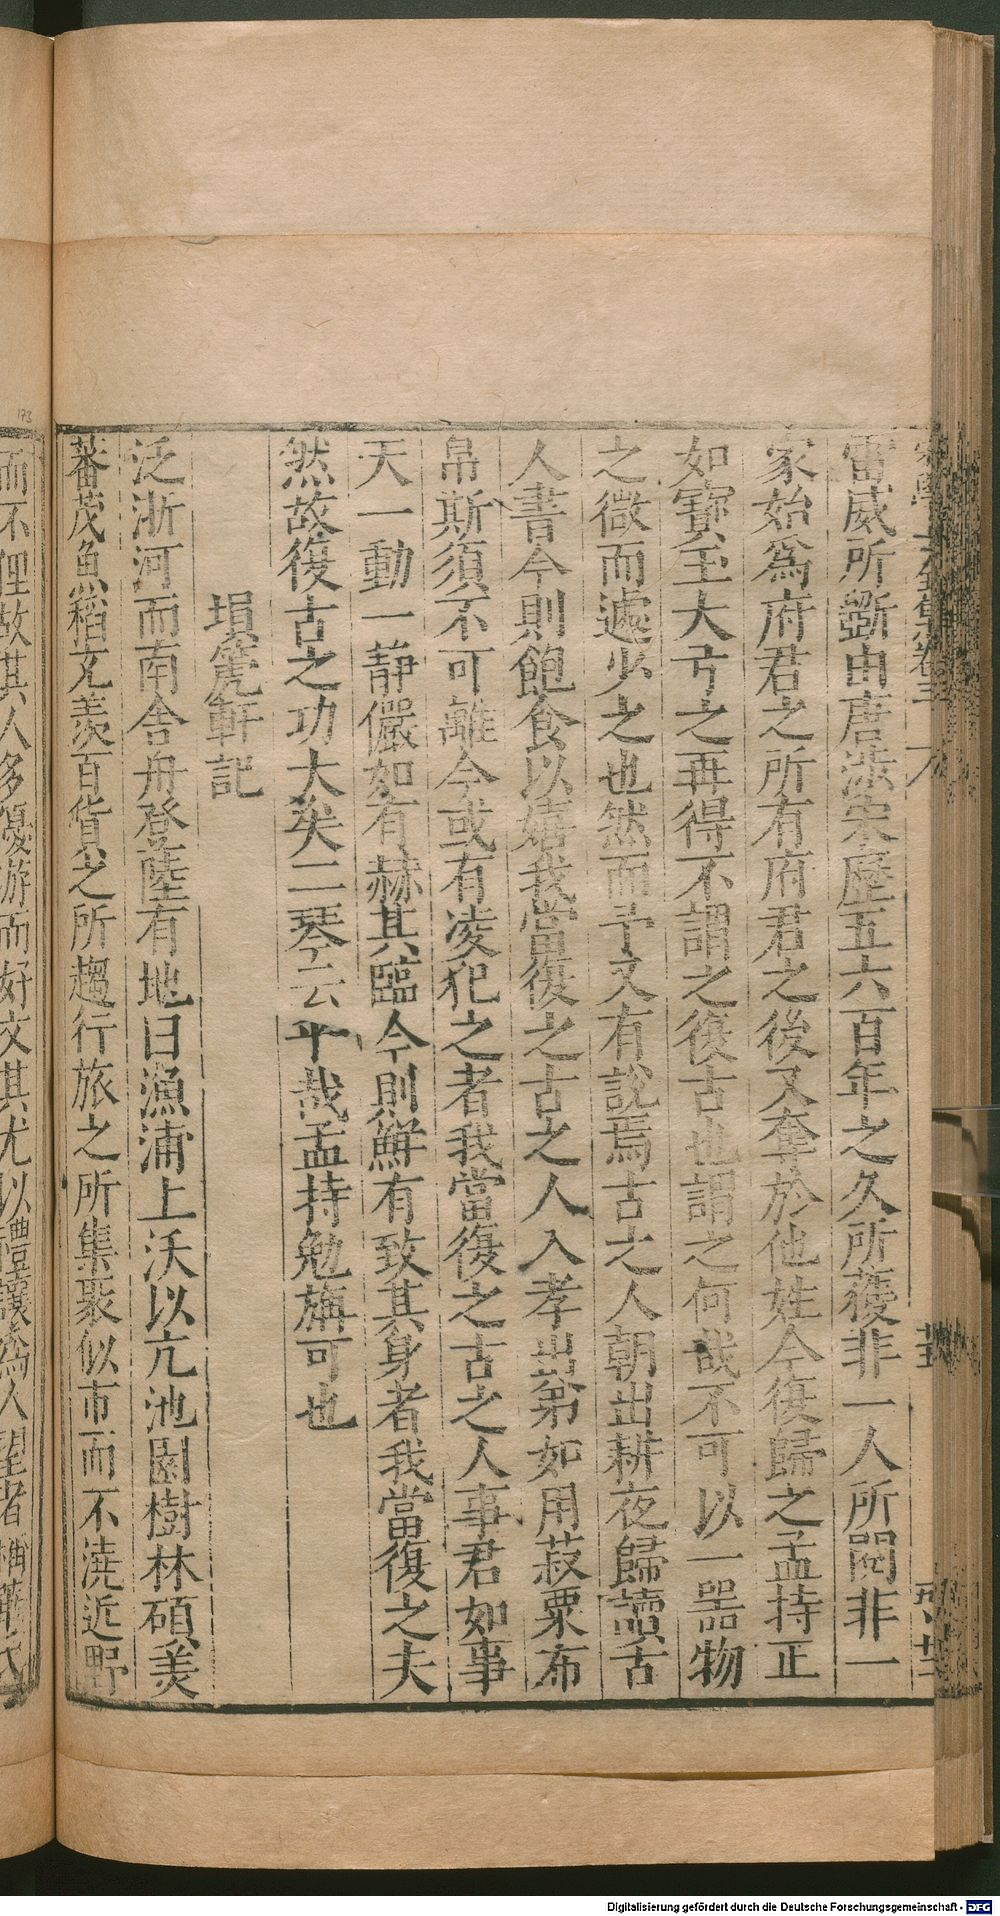 雷威所斲由唐涉宋歷五六百年之久所䕶非一人所閱非一
家始爲府君之所有府君之後又奪於他姓今復歸之孟持正
如寳玉大弓之再得不謂之復古也謂之何哉不可以一噐物
之微而遽少之也然而予又有說焉古之人朝出耕夜歸讀古
人書今則飽食以嬉我當復之古之人入孝出第如用菽粟布
帛斯須不可離今或有凌犯之者我當復之古之人事君如事
天一動一靜儼如有赫其臨今則鮮有致其身者我當復之夫
然故復古之功大矣二琴云乎哉孟持勉旃可也
塤箎軒記
泛浙河而南舍舟登陸有地曰漁浦上沃以亢池園樹林碩羙
蕃茂魚稻充羨百貨之所趨行旅之所集聚似市而不澆近野
而不俚故其人多優游而好文其尤以禮讓爲人望者
173
Digitalisierung gefördert durch die Deutsche Forschungsgemeinschaft - DFG